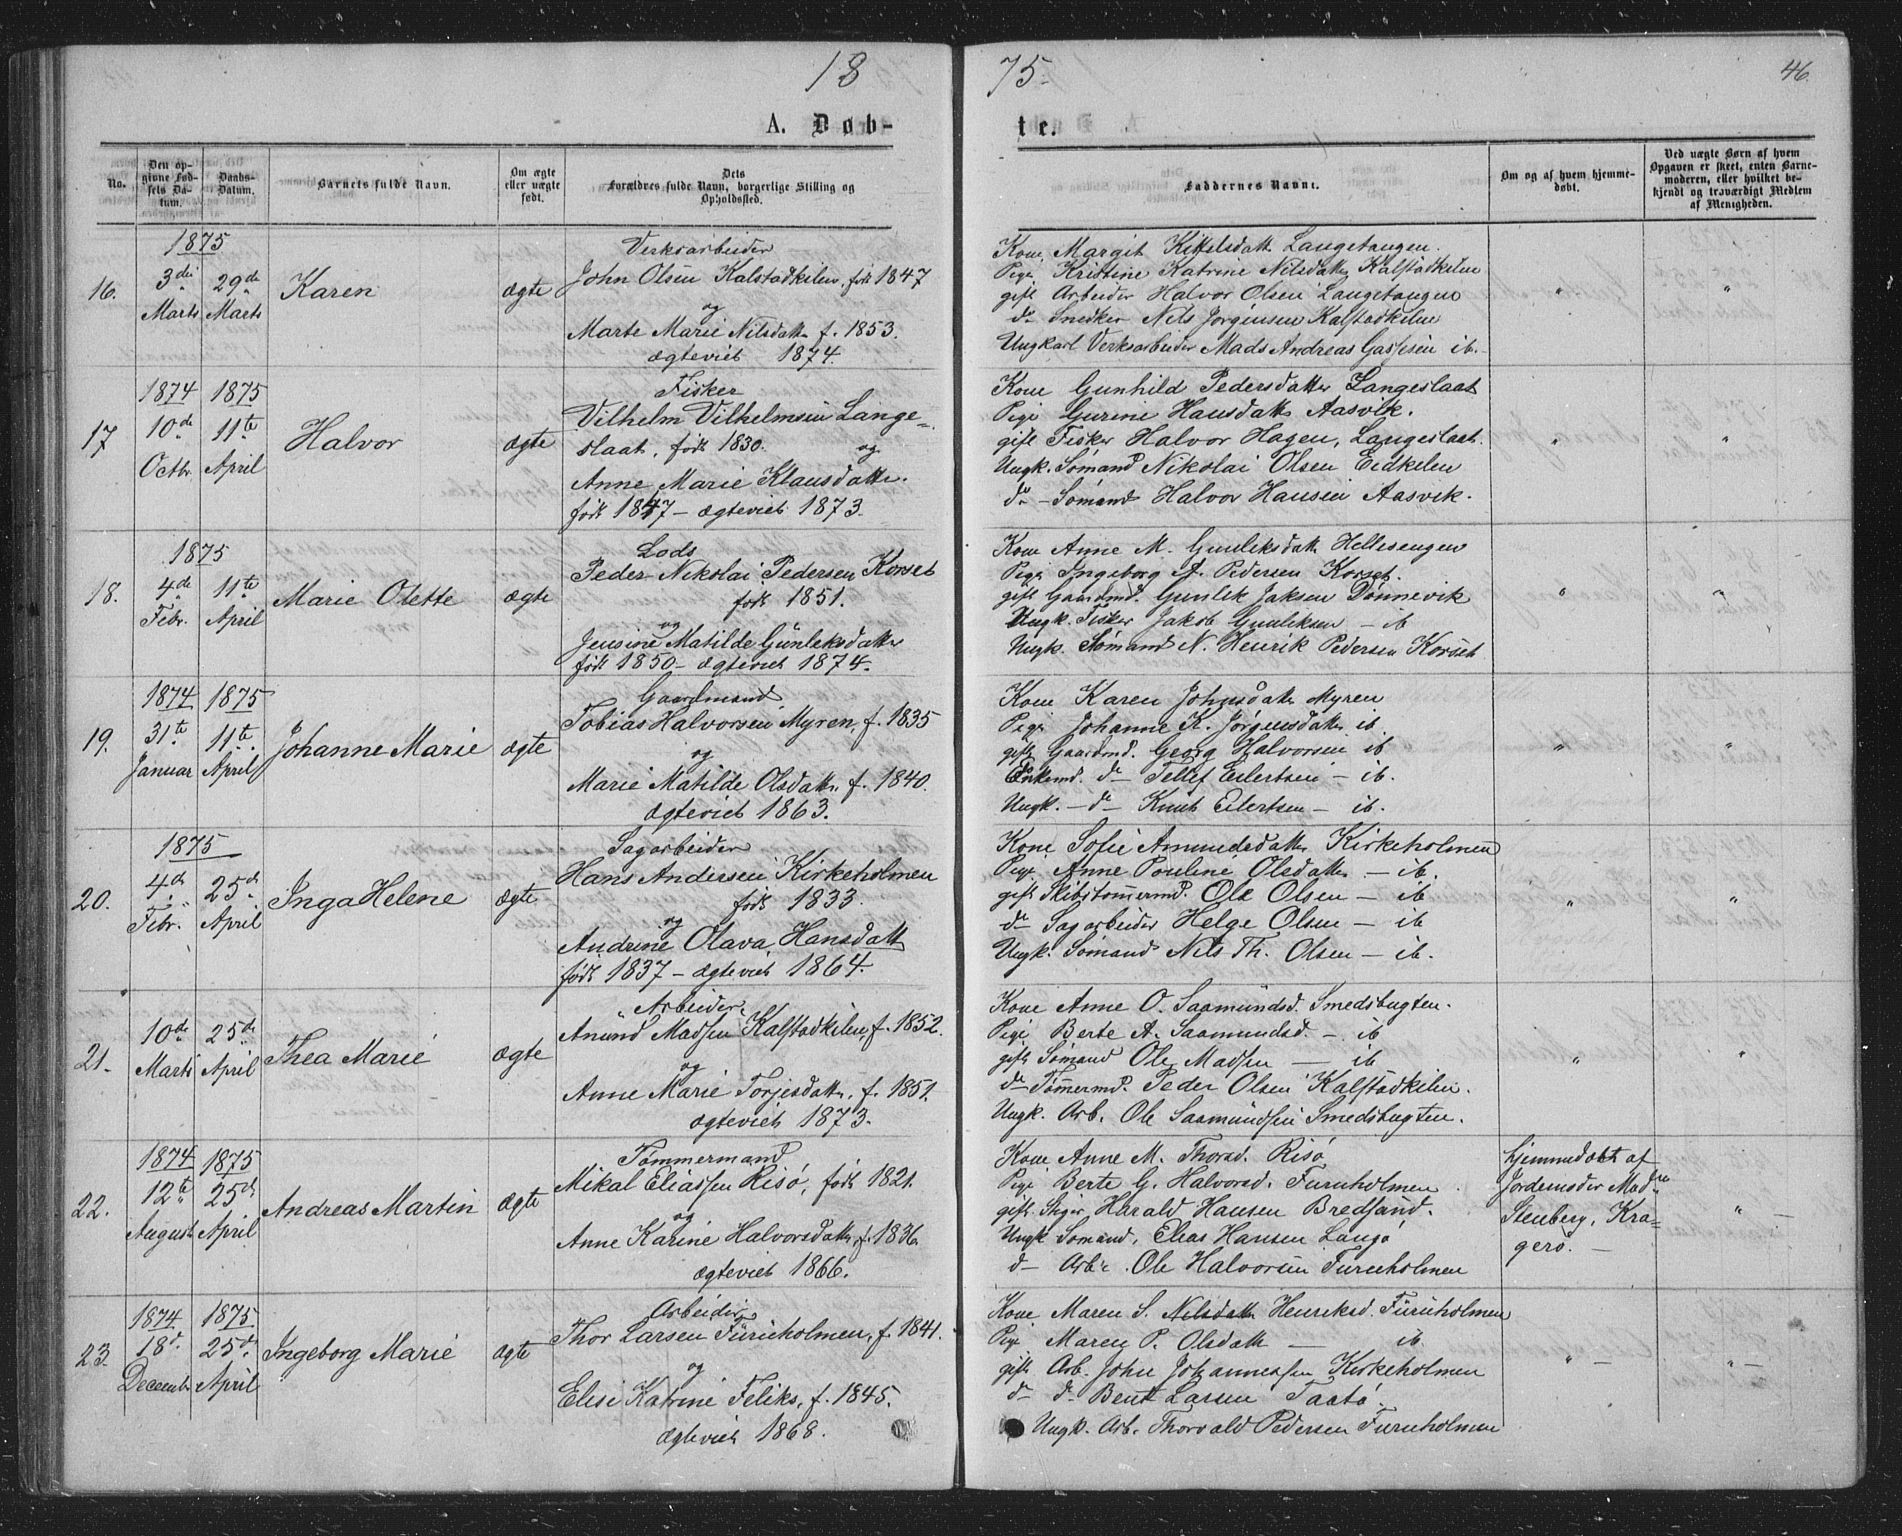 18
75.
46.
A. Døb-
te.
No.
Den op-
givne Fød-
sels Da-
tum.
Daabs-
Datum.
Barnets fulde Navn.
Om ægte
eller uægte
født.
Dets
Forældres fulde Navn, borgerlige Stilling og
Opholdssted.
Faddernes Navne.
Om og af hvem hjemme-
døbt.
Ved uægte Børn af hvem
Opgaven er skeet, enten Barne-
moderen, eller hvilket be-
kjendt og troværdigt Medlem
af Menigheden.
16.
1875
3die
Marts
29de
Marts
Karen
ægte
Verksarbeider
John Olsen Kalstadkilen, født 1847
og
Marte Marie Nilsdatt. f. 1853.
ægteviet 1874.
Kone Margit Kittelsdatt. Langetangen.
Pige Kristine Katrine Nilsdatter Kalstadkilen
gift Arbeider Halvor Olsen Langetangen
do Snedker Nils Jørgensen Kalstadkilen
Ungkarl Verksarbeider Mads Andreas Gassesen ib.
"
"
17
1874
10de
Octbr.
1875
11te
April
Halvor
ægte
Fisker
Vilhelm Vilhelmsen Lange-
slaat, født 1830. og
Anne Marie Klausdatter.
født 1847 - ægteviet 1873.
Kone Gunhild Pedersdatter Langeslaat
Pige Gurine Hansdatt. Aasvik.
gift Fisker Halvor Hagen, Langeslaat.
Ungk. Sømand Nikolai Olsen Eidkilen
do - Sømand Halvor Hansen Aasvik.
"
"
18.
1875
4de
Febr.
11te
April
Marie Olette
ægte
Lods
Peder Nikolai Pedersen Korset
født 1851.
og
Jensine Matilde Günleksdatter
født 1850 - ægteviet 1874.
Kone Anne M. Gunleksdatt. Hellesengen
Pige Ingeborg A. Pedersen Korset.
gift Gaardmd. Gunlek Jaksen Dønnevik
Ungk. Fisker Jakob Gunleksen - ib
Ungk. Sømand N. Henrik Pedersen Korset
"
"
19.
1874
31te
Januar
1875
11te
April
Johanne Marie
ægte
Gaardmand
Tobias Halvorsen Myren, f. 1835
og
Marie Matilde Olsdatt. f. 1840.
ægteviet 1863.
Kone Karen Johnsdatt. Myren
Pige Johanne K. Jørgensdatt. ib.
gift Gaardmd. Georg Halvorsen ib
Enkemd. do Tellef Eilertsen - ib.
Ungk. - do - Knut Eilertsen - ib.
"
"
20.
1875
4de
Febr.
25de
April
Inga Helene
ægte
Sagarbeider
Hans Andersen Kirkeholmen
født 1833.
og
Andrine Olava Hansdatt.
født 1837 - ægteviet 1864.
Kone Sofie Amundsdatter Kirkeholmen
Pige Anne Pouline Olsdatter - ib.
gift Skibstømmermd. Ole Olsen - ib
do Sagarbeider Helge Olsen - ib
Ungk. Sømand Nils Th. Olsen - ib.
"
"
21.
10de
Marts
25de
April
Thea Marie
ægte
Arbeider
Anund Madsen Kalstadkilen, f. 1852.
og
Anne Marie Torjesdatt. f. 1851.
ægteviet 1873.
Kone Anne O. Saamundsd. Smedsbugten.
Pige Berte A. Saamundsd. - ib
gift Sømand Ole Madsen - ib
do Tømmermd. Peder Olsen Kalstadkilen.
Ungk. Arb. Ole Saamundsen Smedsbugten.
"
"
22.
1874
12te
August
1875
25de
April
Andreas Martin
ægte
Tømmermand
Mikal Eliassen Risø, født 1821.
og
Anne Karine Halvorsdatt. f. 1836.
ægteviet 1866.
Kone Anne M. Thorsd. Risø
Pige Berte G. Halvorsd. Furuholmen
gift Harald Hansen Bredsand.
Ungk Sømand, Elias Hansen Langø
do - Arb. Ole Halvorsen Furuholmen
hjemmedøbt af
Jordemoder Mad.
Stenberg, Kra-
gerø. -
"
23.
1874
18de
Decembr
1875
25de
April
Ingeborg Marie
ægte
Arbeider
Thor Larsen Füruholmen, f. 1841.
og
Elise Katrine Feliks, f. 1845.
ægteviet 1868.
Kone Maren S. Nilsdatt. Henriksd. Füruholmen
Pige Maren P. Olsdatt. - ib.
gift Arb. John Johannessen Kirkeholmen
do do Bent Larsen Taatø.
Ungk. Arb. Thorvald Pedersen Furuholmen
"
"